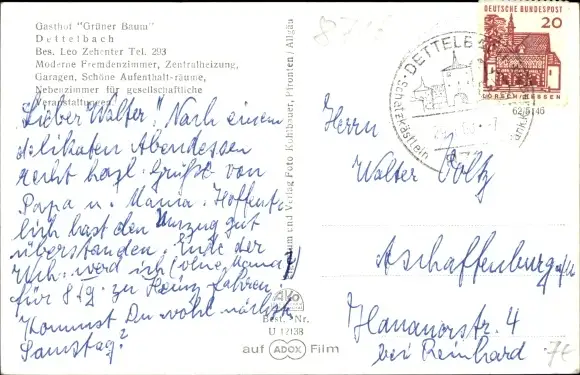 Gasthof "Grüner Baum"
Dettelbach
Bes. Leo Zehenter Tel. 293
Moderne Fremdenzimmer, Zentralheizung,
Garagen, Schöne Aufenthalt-räume,
Nebenzimmer für gesellschaftliche
Veranstaltungen
Lieber Walter! Nach einem
delikaten Abendessen
recht herzl. Grüße von
Papa u. Mama. Hoffent-
lich hast den Umzug gut
überstanden. Ende der
werd ich (ohne Mama)
für 8 Tg. zu Heinz fahren.
Kommst Du wohl nächst.
Samstag?
und Verlag Foto Kuhlbauer, Pfronten/Allgäu
Best.-Nr.
U 12138
auf ADOX Film
DEUTSCHE BUNDESPOST
20
LORSCH/HESSEN
DETTELB
Schatzkästlein
62 5146
Herrn
Walter Voltz
Aschaffenburg a/M
Hanauerstr. 4
bei Reinhard